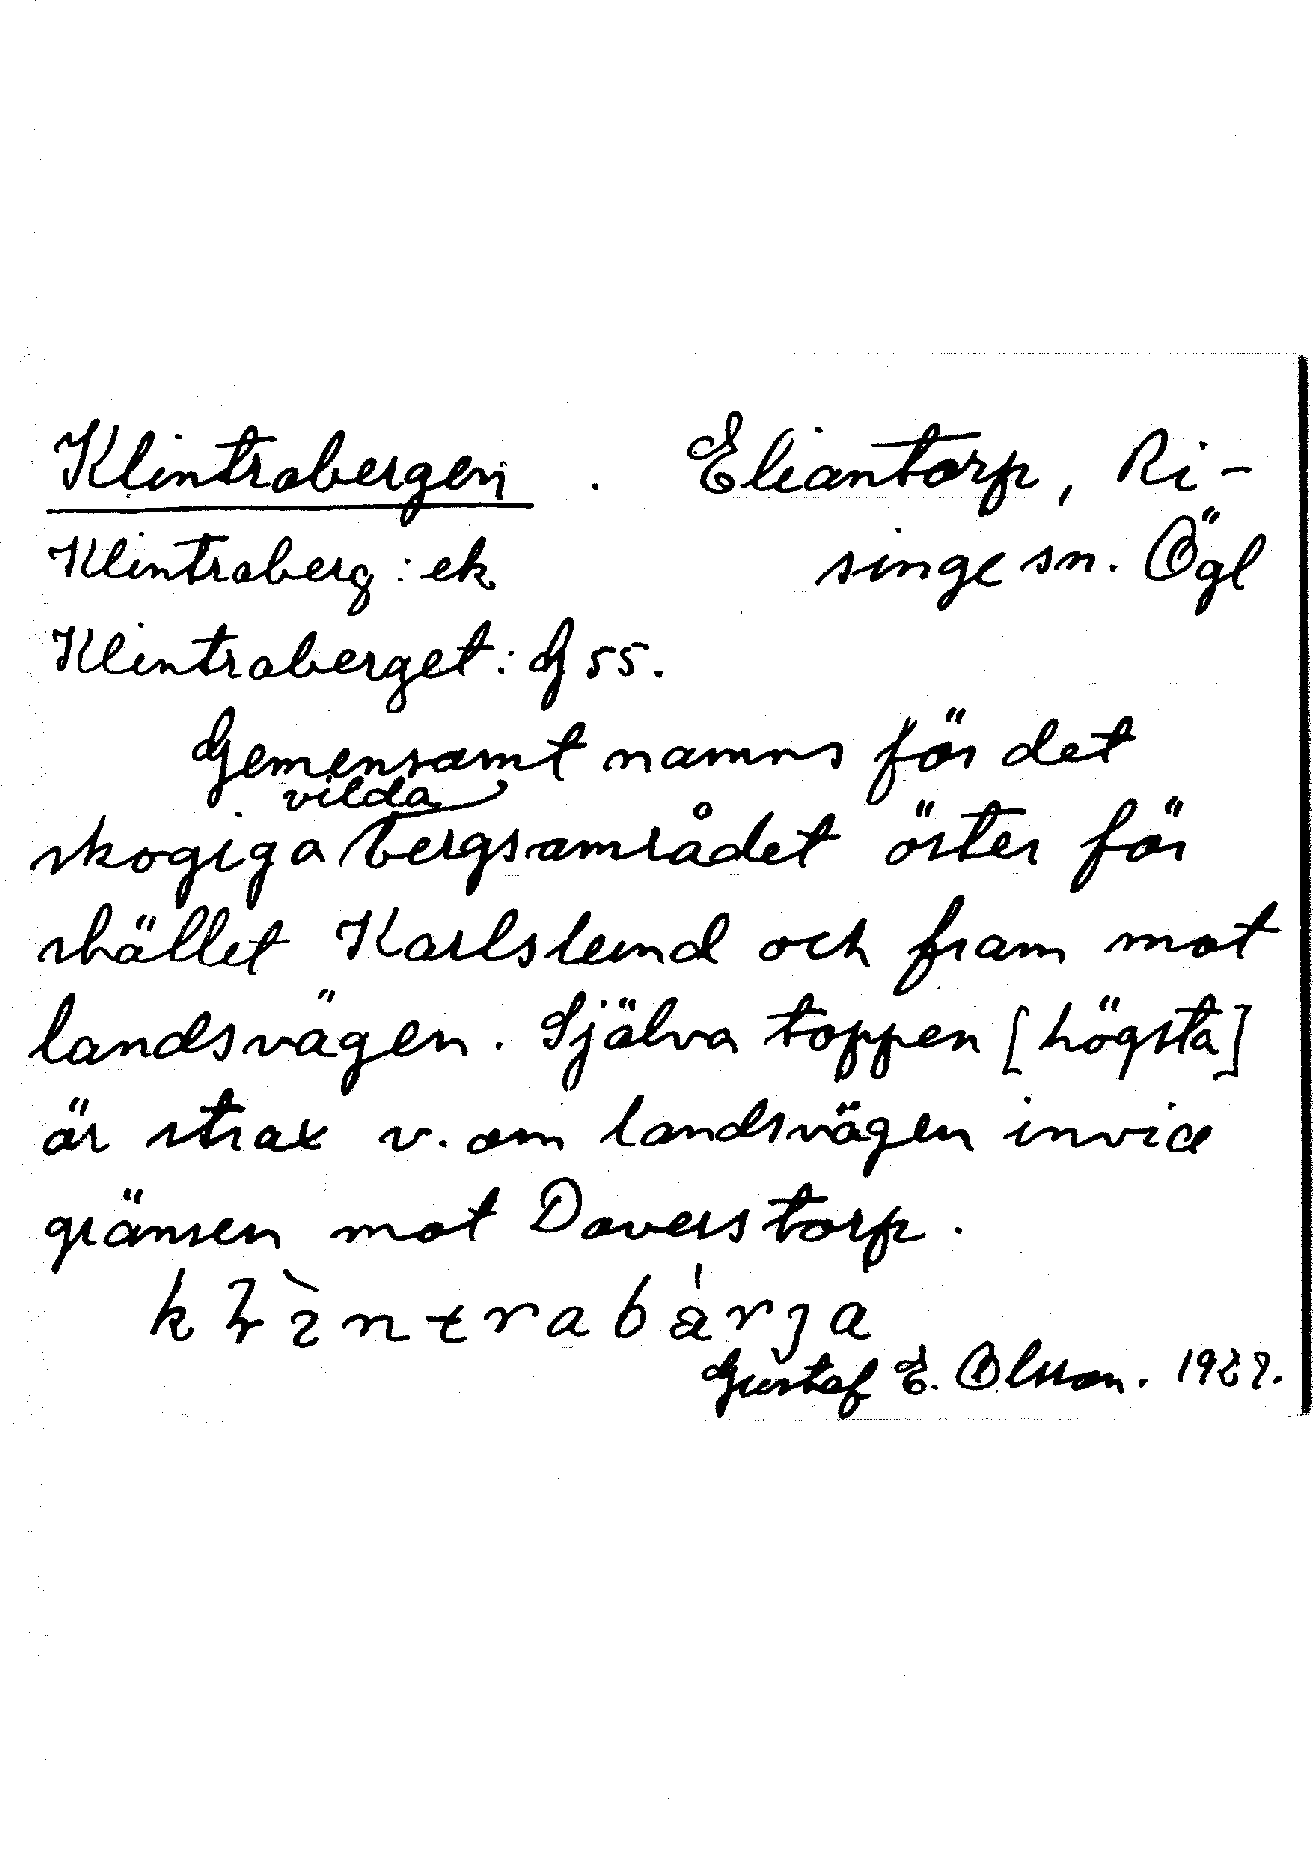 Klintrabergen. Eliantorp, Ri-
Klintraberg: ek singe sn. Ögl
Klintraberget: G 55.
Gemensamt namn för det
skogiga vilda bergsområdet öster för
stället Karlslund och fram mot
landsvägen. Själva toppen [högsta]
är strax v. om landsvägen invid
gränsen mot Doverstorp.
Gustaf E. Olsson.